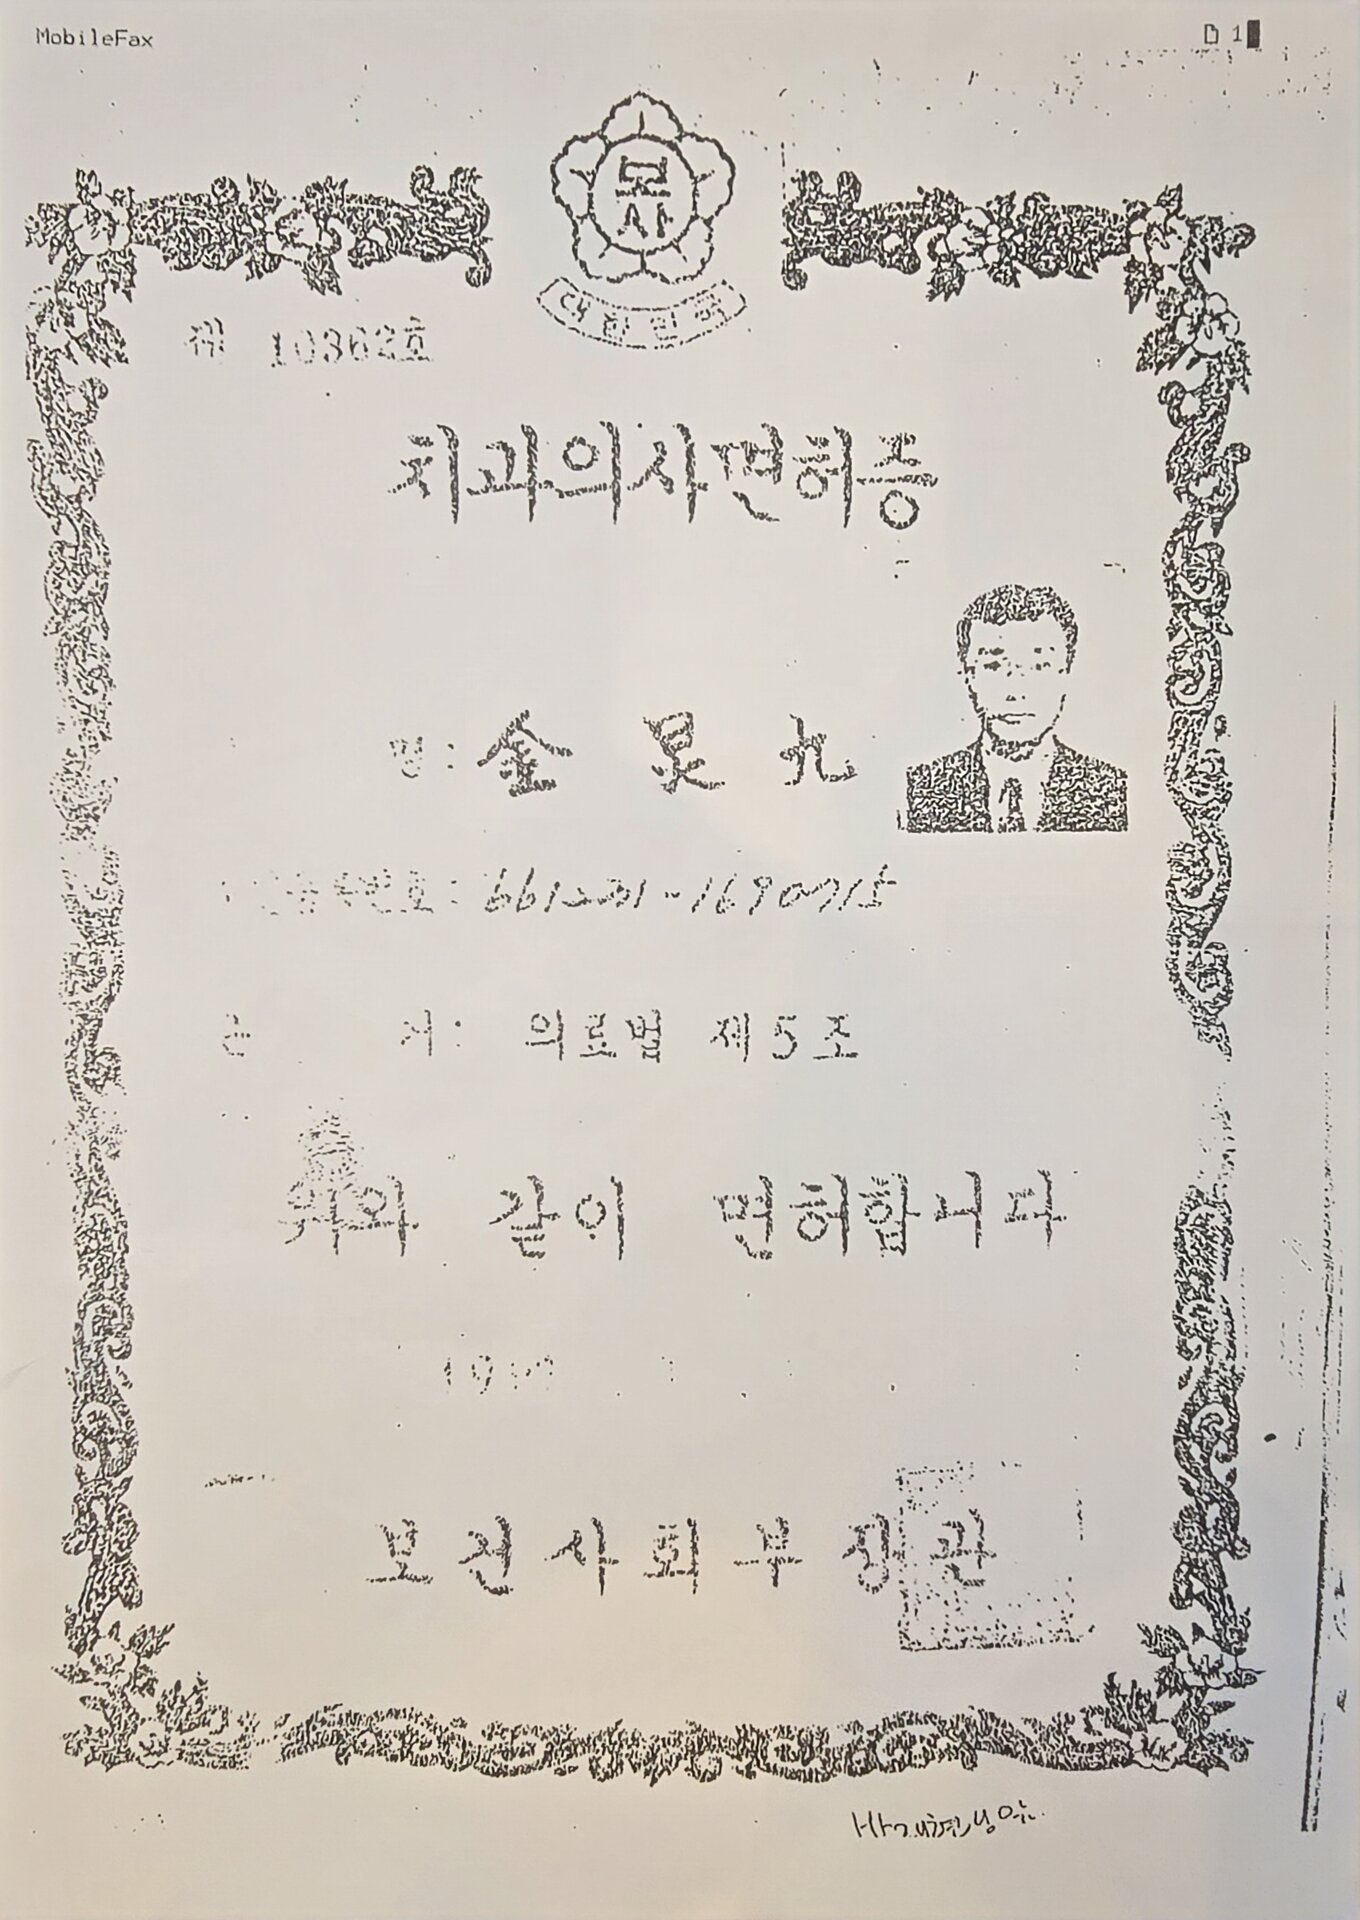 MobileFax
D 1
무사
대한민국
제 10362호
치과의사면허증
명: 金 昊 九
근 거: 의료법 제5조
위와 같이 면허합니다
19
보건사회부장관